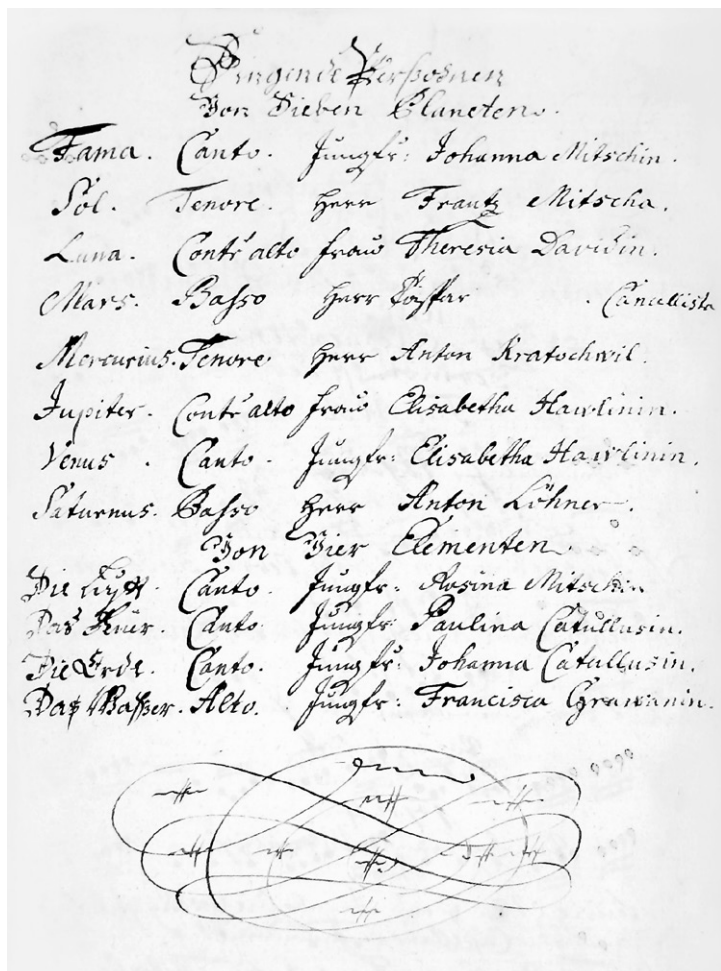 Singende Persohnen
Von Sieben Planeten.
Fama. Canto. Jungfr: Johanna Mitschin.
Sol. Tenore. Herr Frantz Mitscha.
Luna. Contr'alto Frau Theresia Davidin.
Mars. Basso Herr Cansilista
Mercurius. Tenore. Herr Anton Kratochwil.
Jupiter. Contr'alto Frau Elisabetha Hawlinin.
Venus. Canto. Jungfr: Elisabetha Hawlinin.
Saturnus. Basso Herr Anton Löhner.
Von Vier Elementen
Die Lufft. Canto. Jungfr: Rosina Mitschin
Das Feuer. Canto. Jungfr: Paulina Catullusin.
Die Erde. Canto. Jungfr: Johanna Catullusin.
Das Wasser. Alto. Jungfr: Francisca